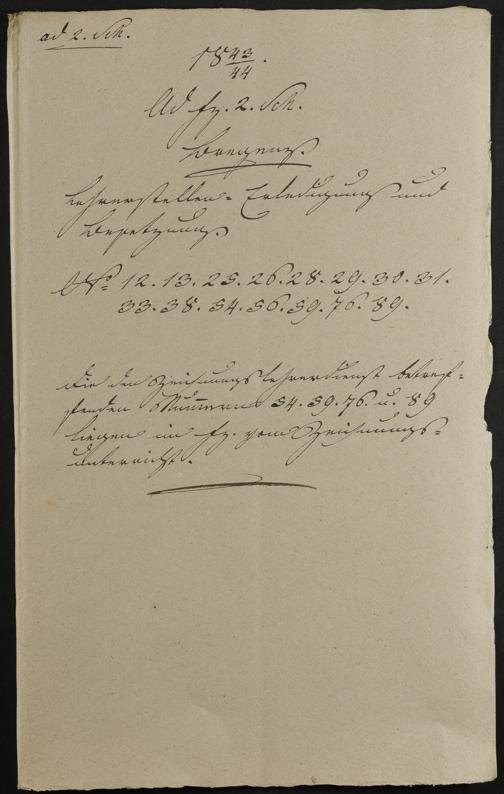 ad 2. Sch.
18 43/44.
Ad fz. 2. Sch.
Bregenz.
Lehrerstellen-Erledigung und
Besetzung.
No 12. 13. 25. 26. 28. 29. 30. 31.
33. 38. 54. 56. 59. 76. 89.
Die den Zeichnungslehrerdienst betref-
fenden Nummern 54. 59. 76. u. 89
liegen im fz. vom Zeichnungs-
unterricht.